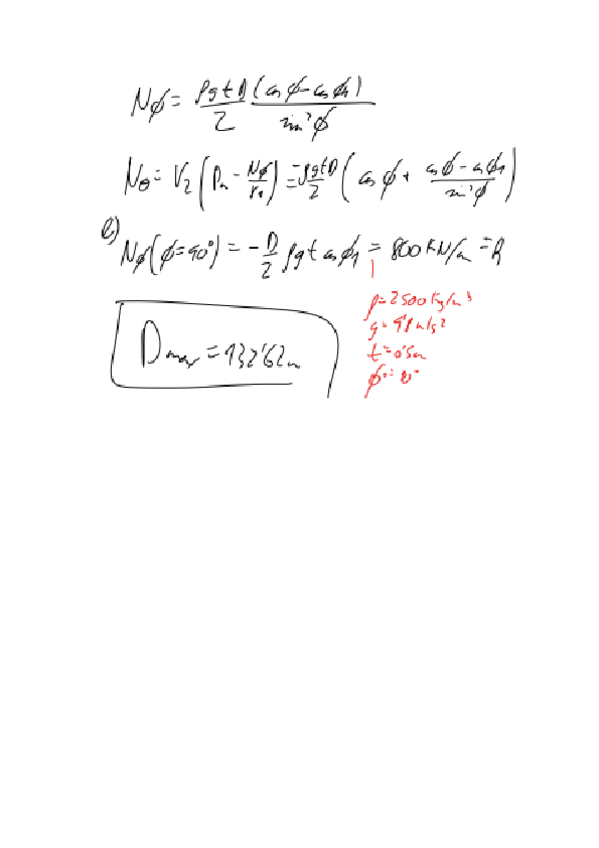 Nϕ = ρgtD/2 (cos ϕ - cos ϕ1)/sin²ϕ
Nθ = r2 (Pn - Nϕ/r1) = -ρgtD/2 (cos ϕ + (cos ϕ - cos ϕ1)/sin²ϕ)
Nϕ(ϕ=90°) = -D/2 ρgt cos ϕ1 = 800 kN/m = R
ρ=2500 kg/m³
g=9'8 m/s²
t=0'5m
Dmax = 132'62m